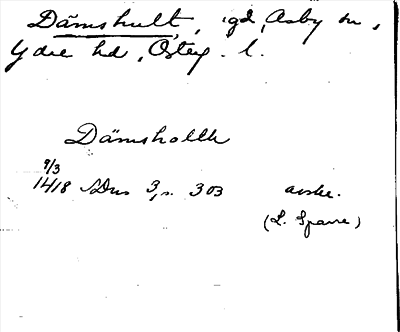 Dämshult, igd, Asby sn,
Ydre hd, Österg. l.
Dämshollth
7/3
1418 SDns 3, s. 303 avskr.
(L. Sparre)